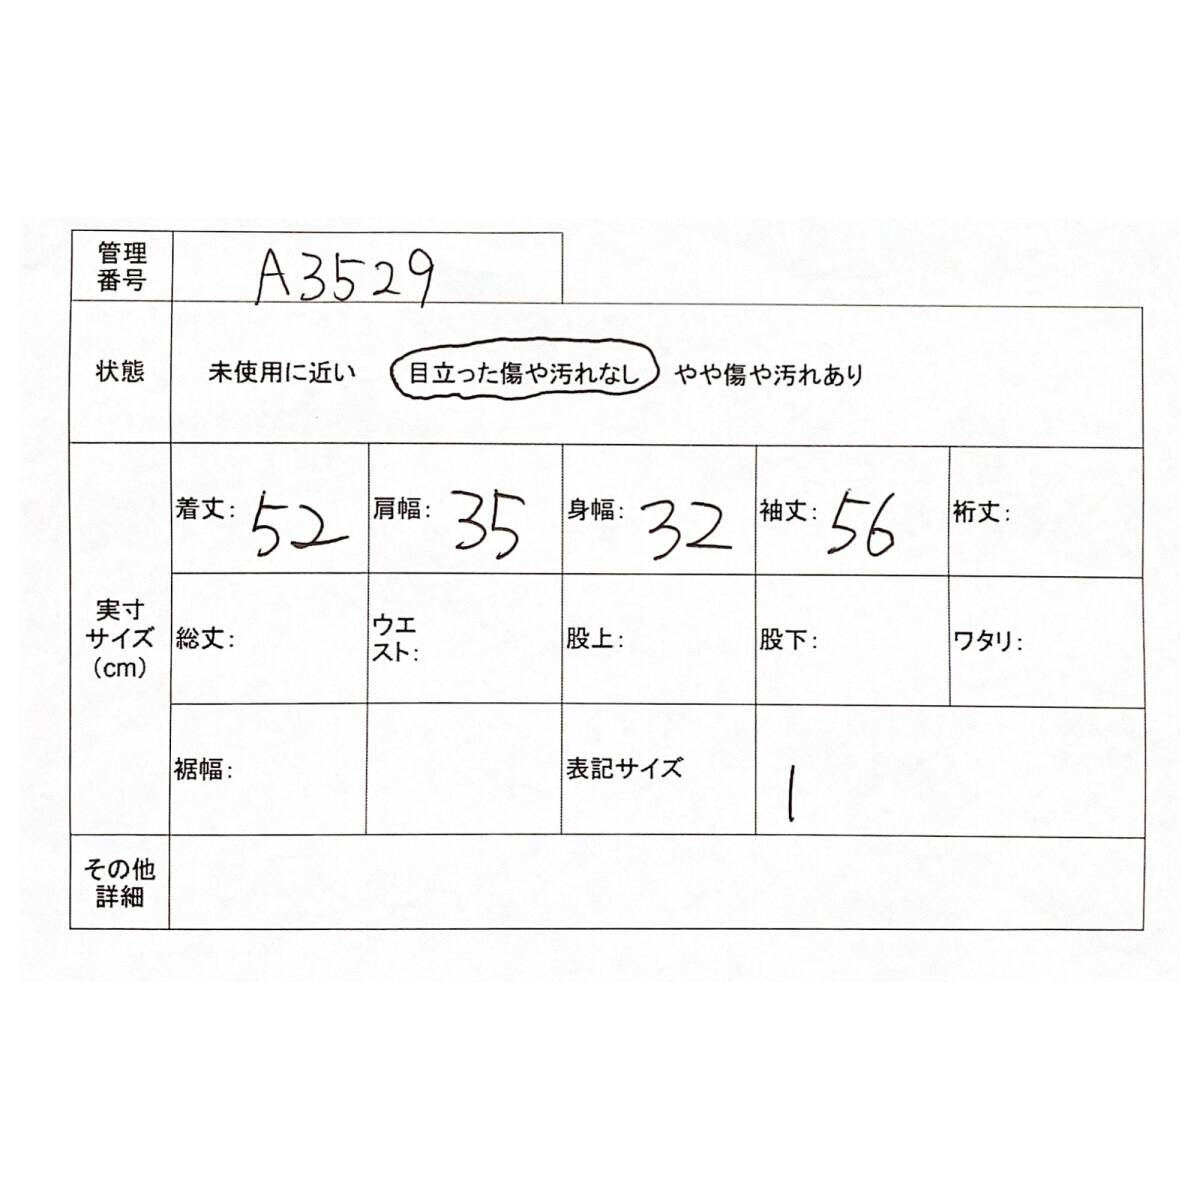 管理
番号
A3529
状態
未使用に近い 目立った傷や汚れなし やや傷や汚れあり
実寸
サイズ
(cm)
着丈: 52 肩幅: 35 身幅: 32 袖丈: 56 裄丈:
総丈: ウエ
スト: 股上: 股下: ワタリ:
裾幅: 表記サイズ 1
その他
詳細